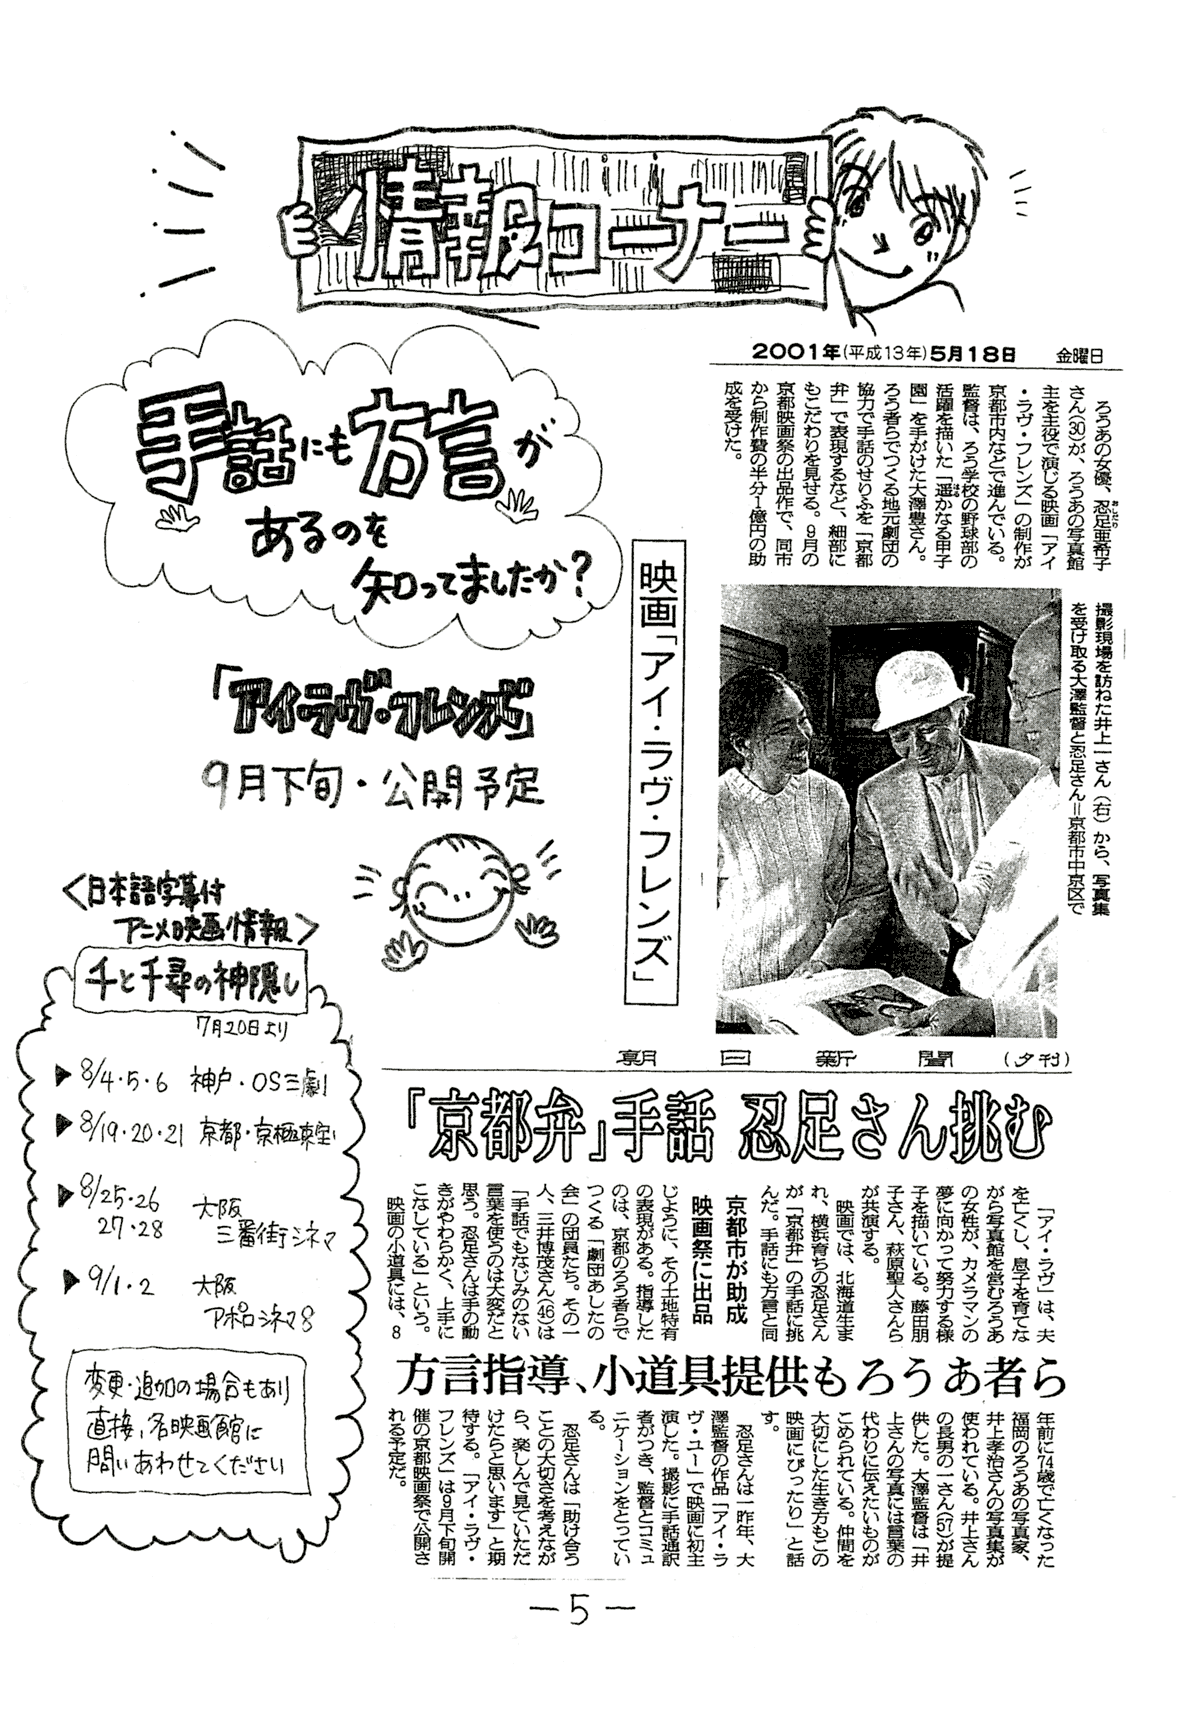 情報コーナー
手話にも方言が
あるのを
知ってましたか?
「アイ・ラヴ・フレンズ」
9月下旬・公開予定
<日本語字幕付
アニメ映画情報>
千と千尋の神隠し
7月20日より
▶8/4・5・6 神戸・OS三劇
▶8/19・20・21 京都・京極東宝
▶8/25・26
27・28
大阪
三番街シネマ
▶9/1・2 大阪
アポロシネマ8
変更・追加の場合もあり
直接、各映画館に
問いあわせてください
2001年(平成13年)5月18日 金曜日
ろうあの女優、忍足亜希子
おしだり
さん(30)が、ろうあの写真館
主を主役で演じる映画「アイ
・ラヴ・フレンズ」の制作が
京都市内などで進んでいる。
監督は、ろう学校の野球部の
活躍を描いた「遥かなる甲子
はる
園」を手がけた大澤豊さん。
ろう者らでつくる地元劇団の
協力で手話のせりふを「京都
弁」で表現するなど、細部に
もこだわりを見せる。9月の
京都映画祭の出品作で、同市
から制作費の半分1億円の助
成を受けた。
映画「アイ・ラヴ・フレンズ」
撮影現場を訪ねた井上一さん(右)から、写真集
を受け取る大澤監督と忍足さん=京都市中京区で
朝日新聞 (夕刊)
「京都弁」手話 忍足さん挑む
「アイ・ラヴ」は、夫
を亡くし、息子を育てな
がら写真館を営むろうあ
の女性が、カメラマンの
夢に向かって努力する様
子を描いている。藤田朋
子さん、萩原聖人さんら
が共演する。
映画では、北海道生ま
れ、横浜育ちの忍足さん
が「京都弁」の手話に挑
んだ。手話にも方言と同
京都市が助成
映画祭に出品
じように、その土地特有
の表現がある。指導した
のは、京都のろう者らで
つくる「劇団あしたの
会」の団員たち。その一
人、三井博茂さん(46)は
「手話でもなじみのない
言葉を使うのは大変だと
思う。忍足さんは手の動
きがやわらかく、上手に
こなしている」という。
映画の小道具には、8
方言指導、小道具提供もろうあ者ら
年前に74歳で亡くなった
福岡のろうあの写真家、
井上孝治さんの写真集が
使われている。井上さん
の長男の一さん(51)が提
供した。大澤監督は「井
上さんの写真には言葉の
代わりに伝えたいものが
こめられている。仲間を
大切にした生き方もこの
映画にぴったり」と話
す。
忍足さんは一昨年、大
澤監督の作品「アイ・ラ
ヴ・ユー」で映画に初主
演した。撮影に手話通訳
者がつき、監督とコミュ
ニケーションをとってい
る。
忍足さんは「助け合う
ことの大切さを考えなが
ら、楽しんで見ていただ
けたらと思います」と期
待する。「アイ・ラヴ・
フレンズ」は9月下旬開
催の京都映画祭で公開さ
れる予定だ。
—5—